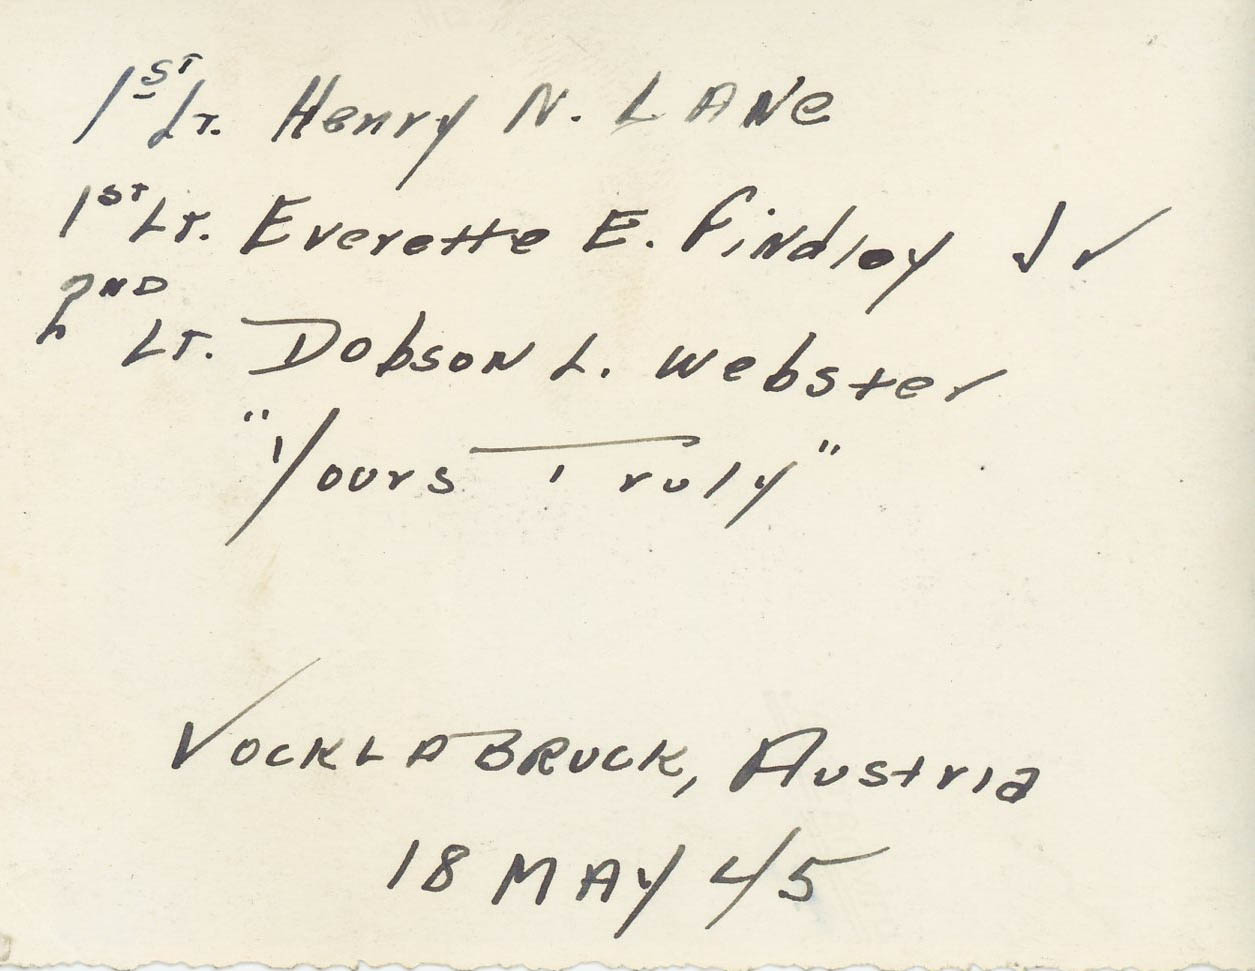 1ST Lt. Henry N. LANe
1ST Lt. Everette E. Findley Jr
2ND Lt. Dobson L. Webster
"Yours Truly"
VOCKLABRUCK, Austria
18 MAY 45